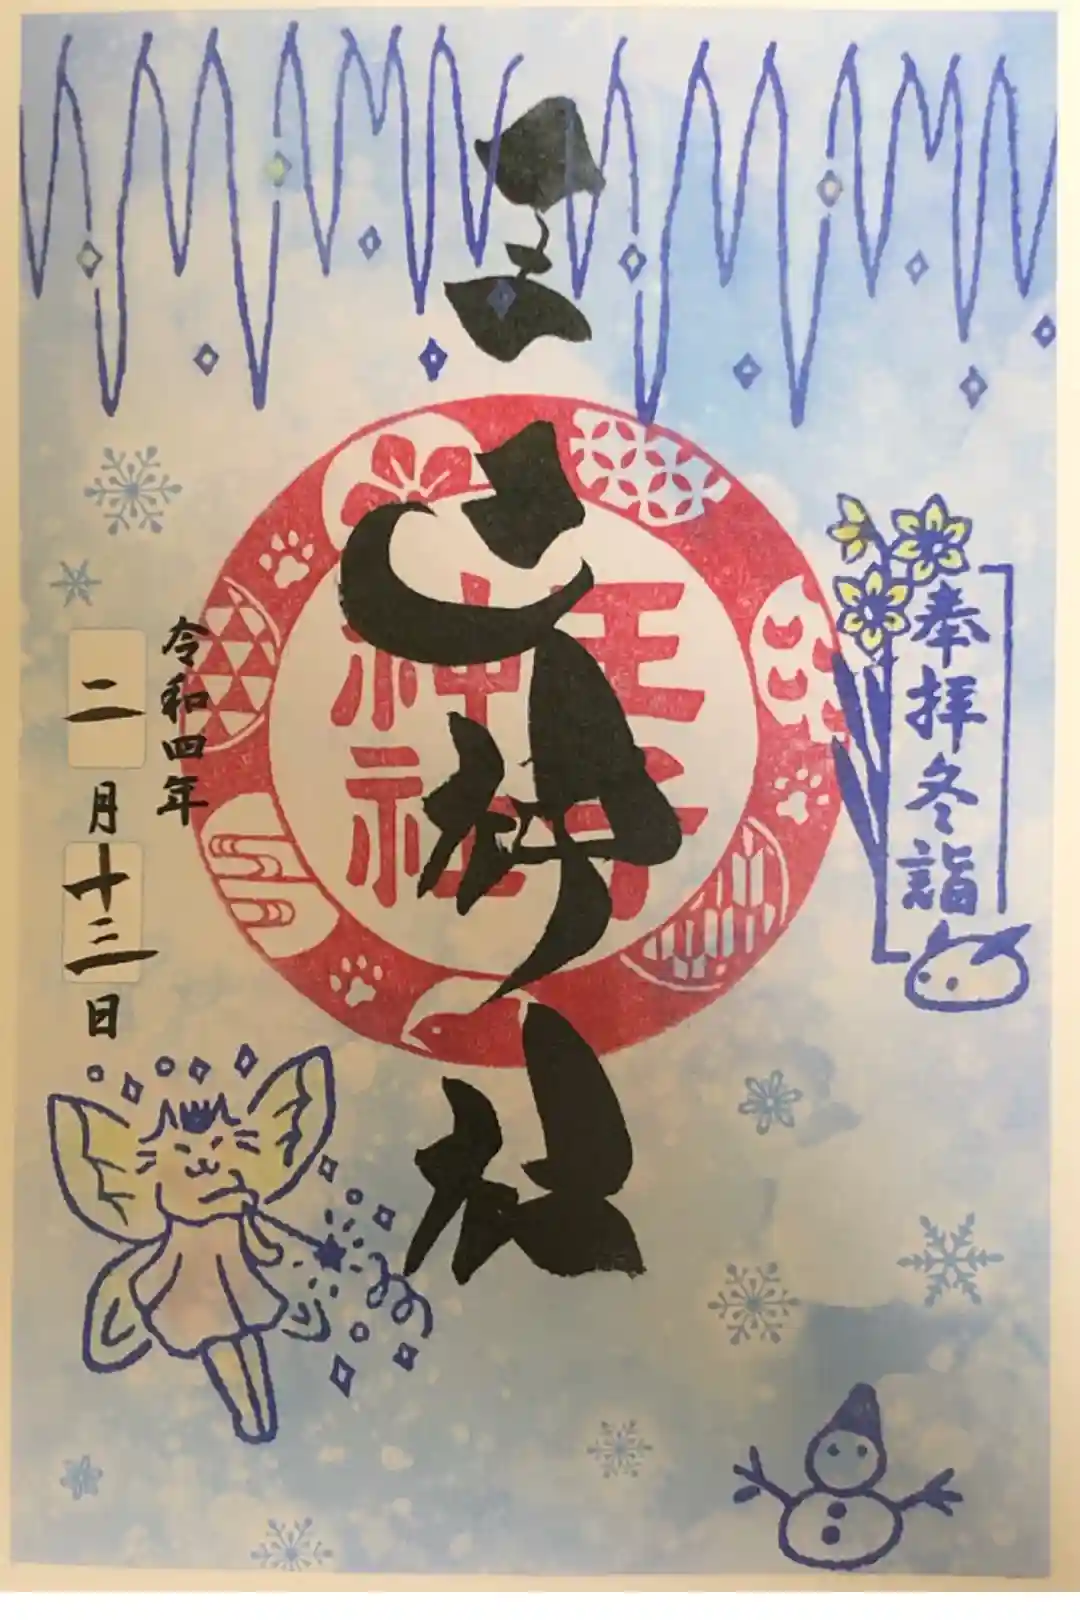 奉拝冬詣
王子神社
王子神社
令和四年
二月十三日